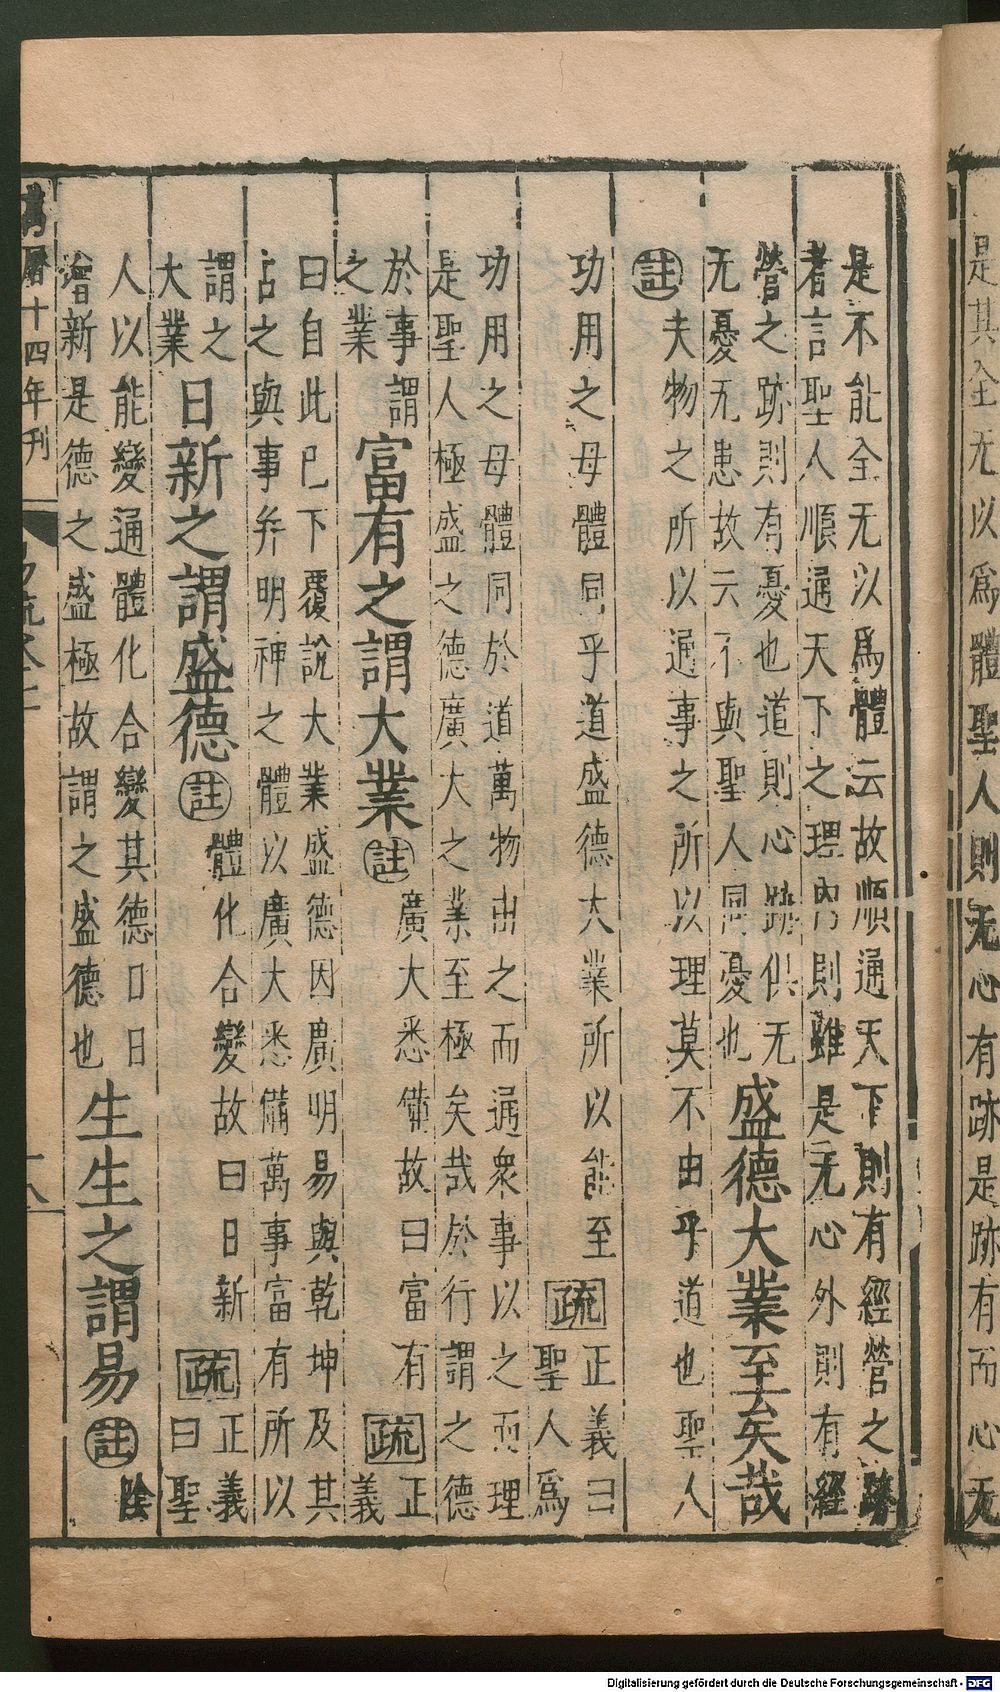 是其全无以爲體聖人則无心有跡是跡有而心无
是不能全无以爲體云故順通天下則有經營之跡
者言聖人順通天下之理內則雖是无心外則有經
營之跡則有憂也道則心跡俱无
无憂无患故云不與聖人同憂也
盛德大業至矣哉
註 夫物之所以通事之所以理莫不由乎道也聖人
功用之母體同乎道盛德大業所以能至 疏 正義曰
聖人爲
功用之母體同於道萬物由之而通衆事以之而理
是聖人極盛之德廣大之業至極矣哉於行謂之德
於事謂
之業
富有之謂大業 註 廣大悉備故曰富有 疏 正
義
曰自此已下覆說大業盛德因廣明易與乾坤及其
占之與事并明神之體以廣大悉備萬事富有所以
謂之
大業
日新之謂盛德 註 體化合變故曰日新 疏 正義
曰聖
人以能變通體化合變其德日日
增新是德之盛極故謂之盛德也
生生之謂易 註 陰
萬曆十四年刊 易疏卷
Digitalisierung gefördert durch die Deutsche Forschungsgemeinschaft - DFG